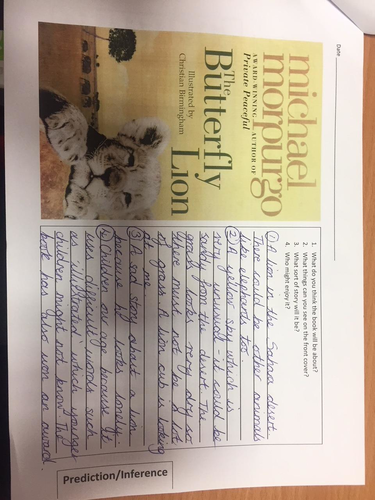 Date
michael
morpurgo
AWARD-WINNING AUTHOR OF
Private Peaceful
The
Butterfly
Lion
Illustrated by
Christian Birmingham
1. What do you think the book will be about?
2. What things can you see on the front cover?
3. What sort of story will it be?
4. Who might enjoy it?
① A lion in the desert.
There could be other animals
like elephants too.
② A yellow sky which is
very unusual - it could be
sandy from the desert. The
grass looks very dry so
there must not be a lot
of grass. A lion cub is looking
at me.
③ A sad story about a lion
because it looks lonely.
④ Children our age because it
uses difficult words such
as 'illustrated' which younger
children might not know. The
book has also won an award.
Prediction/Inference